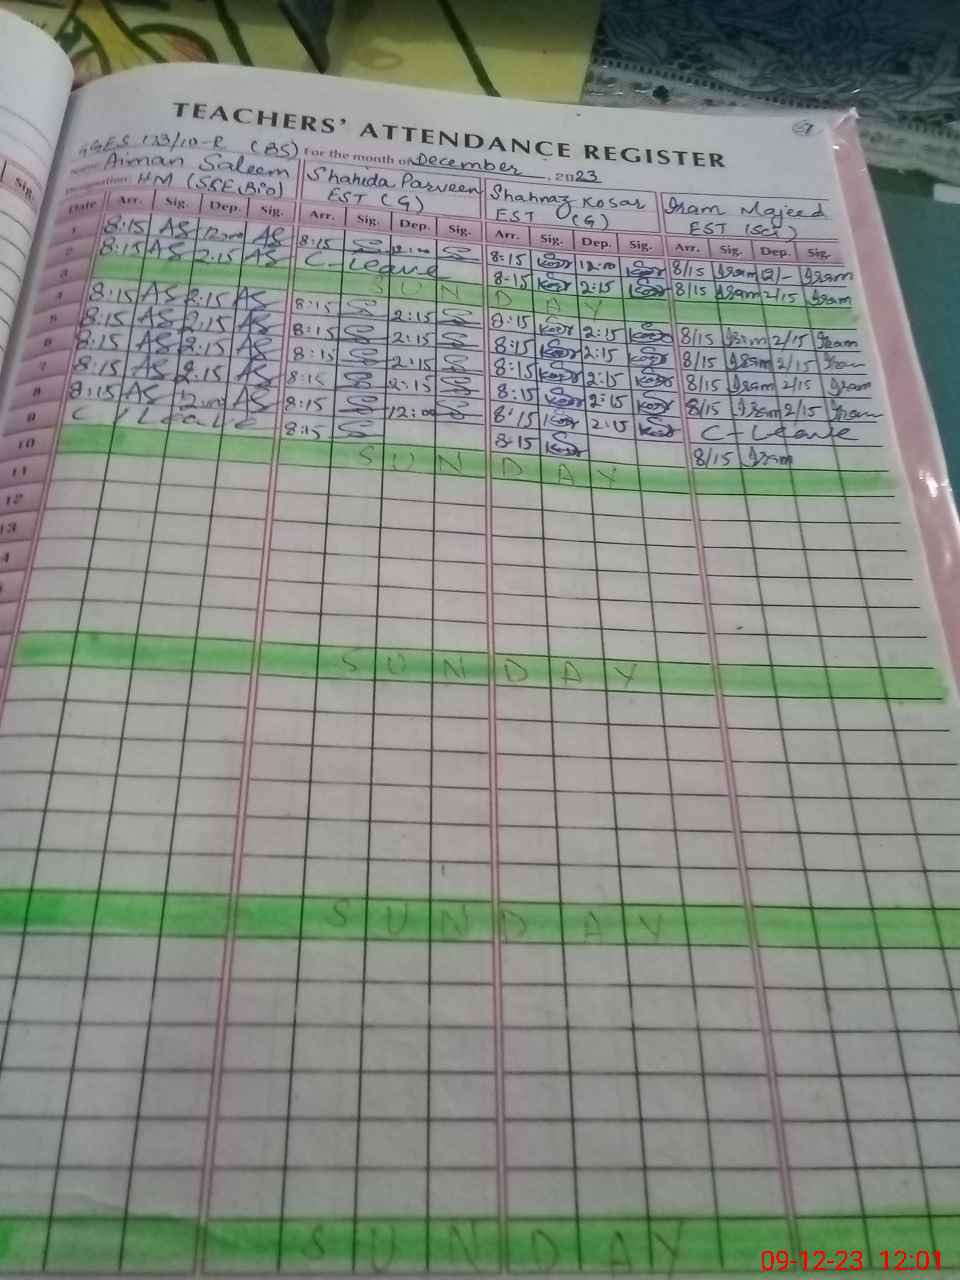 TEACHERS' ATTENDANCE REGISTER
GGES 123/10-R (BS) For the month of December, 2023
Name Aiman Saleem Shahida Parveen Shahnaz Kosar Iram Majeed
Designation: HM (SSE(Bio) EST (G) EST (G) EST (Sci)
Date Arr. Sig. Dep. Sig. Arr. Sig. Dep. Sig. Arr. Sig. Dep. Sig. Arr. Sig. Dep. Sig.
1 8:15 AS 12:00 AS 8:15 12:00 8:15 Kosar 12:00 Kosar 8/15 Iram 2/- Iram
2 8:15 AS 2:15 AS C-Leave 8:15 Kosar 2:15 Kosar 8/15 Iram 2/15 Iram
3 SUNDAY
4 8:15 AS 2:15 AS 8:15 2:15 8:15 Kosar 2:15 Kosar 8/15 Iram 2/15 Iram
5 8:15 AS 2:15 AS 8:15 2:15 8:15 Kosar 2:15 Kosar 8/15 Iram 2/15 Iram
6 8:15 AS 2:15 AS 8:15 2:15 8:15 Kosar 2:15 Kosar 8/15 Iram 2/15 Iram
7 8:15 AS 2:15 AS 8:15 2:15 8:15 Kosar 2:15 Kosar 8/15 Iram 2/15 Iram
8 8:15 AS 12:00 AS 8:15 12:00 8:15 Kosar 2:15 Kosar C-Leave
9 C/Leave 8:15 8:15 Kosar 8/15 Iram
10 SUNDAY
11
12
13
SUNDAY
SUNDAY
SUNDAY
Sig.
09-12-23 12:01